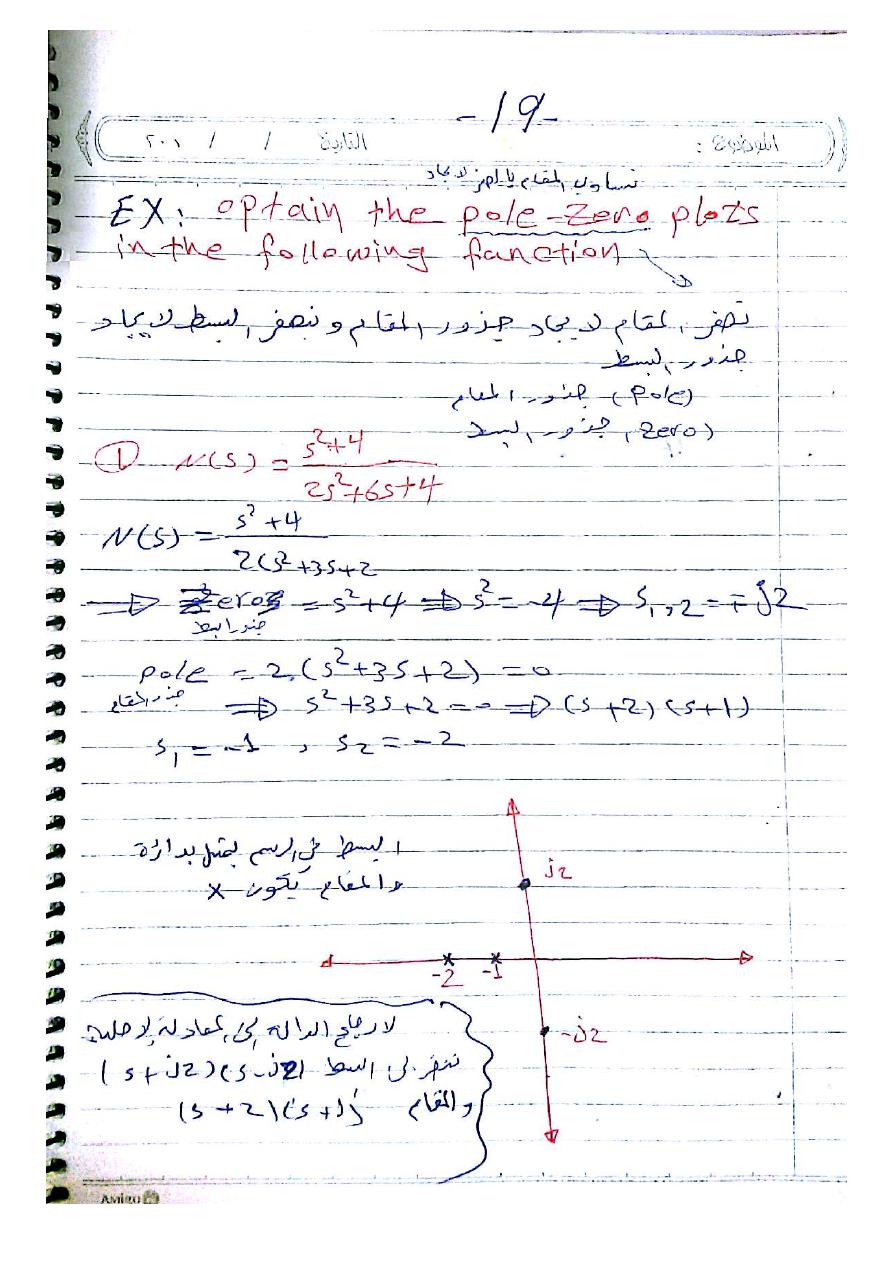 -19-
الموضوع : التاريخ / / ٢٠١
نساوي المقام بالصفر لايجاد
EX: optain the pole-Zero plots
in the following fanction
نصفر المقام لايجاد جذور المقام ونصفر البسط لايجاد
جذور البسط
(pole) جذور المقام
(Zero) جذور البسط
① N(s) = s²+4 / 2s²+6s+4
N(s) = s²+4 / 2(s²+3s+2
⇒ Zeros = s²+4 ⇒ s² = -4 ⇒ s₁,₂ = ∓j2
جذر البسط
pole = 2.(s²+3s+2) = 0
جذر المقام ⇒ s²+3s+2 = 0 ⇒ (s+2)(s+1)
s₁ = -1 , s₂ = -2
البسط في الرسم يمثل بدائرة
والمقام يكون x
j2
-2 -1
-j2
لارجاع الدالة الى المعادلة الاصلية
نضرب البسط (s+j2)(s-j2)
والمقام (s+2)(s+1)
AMIGO